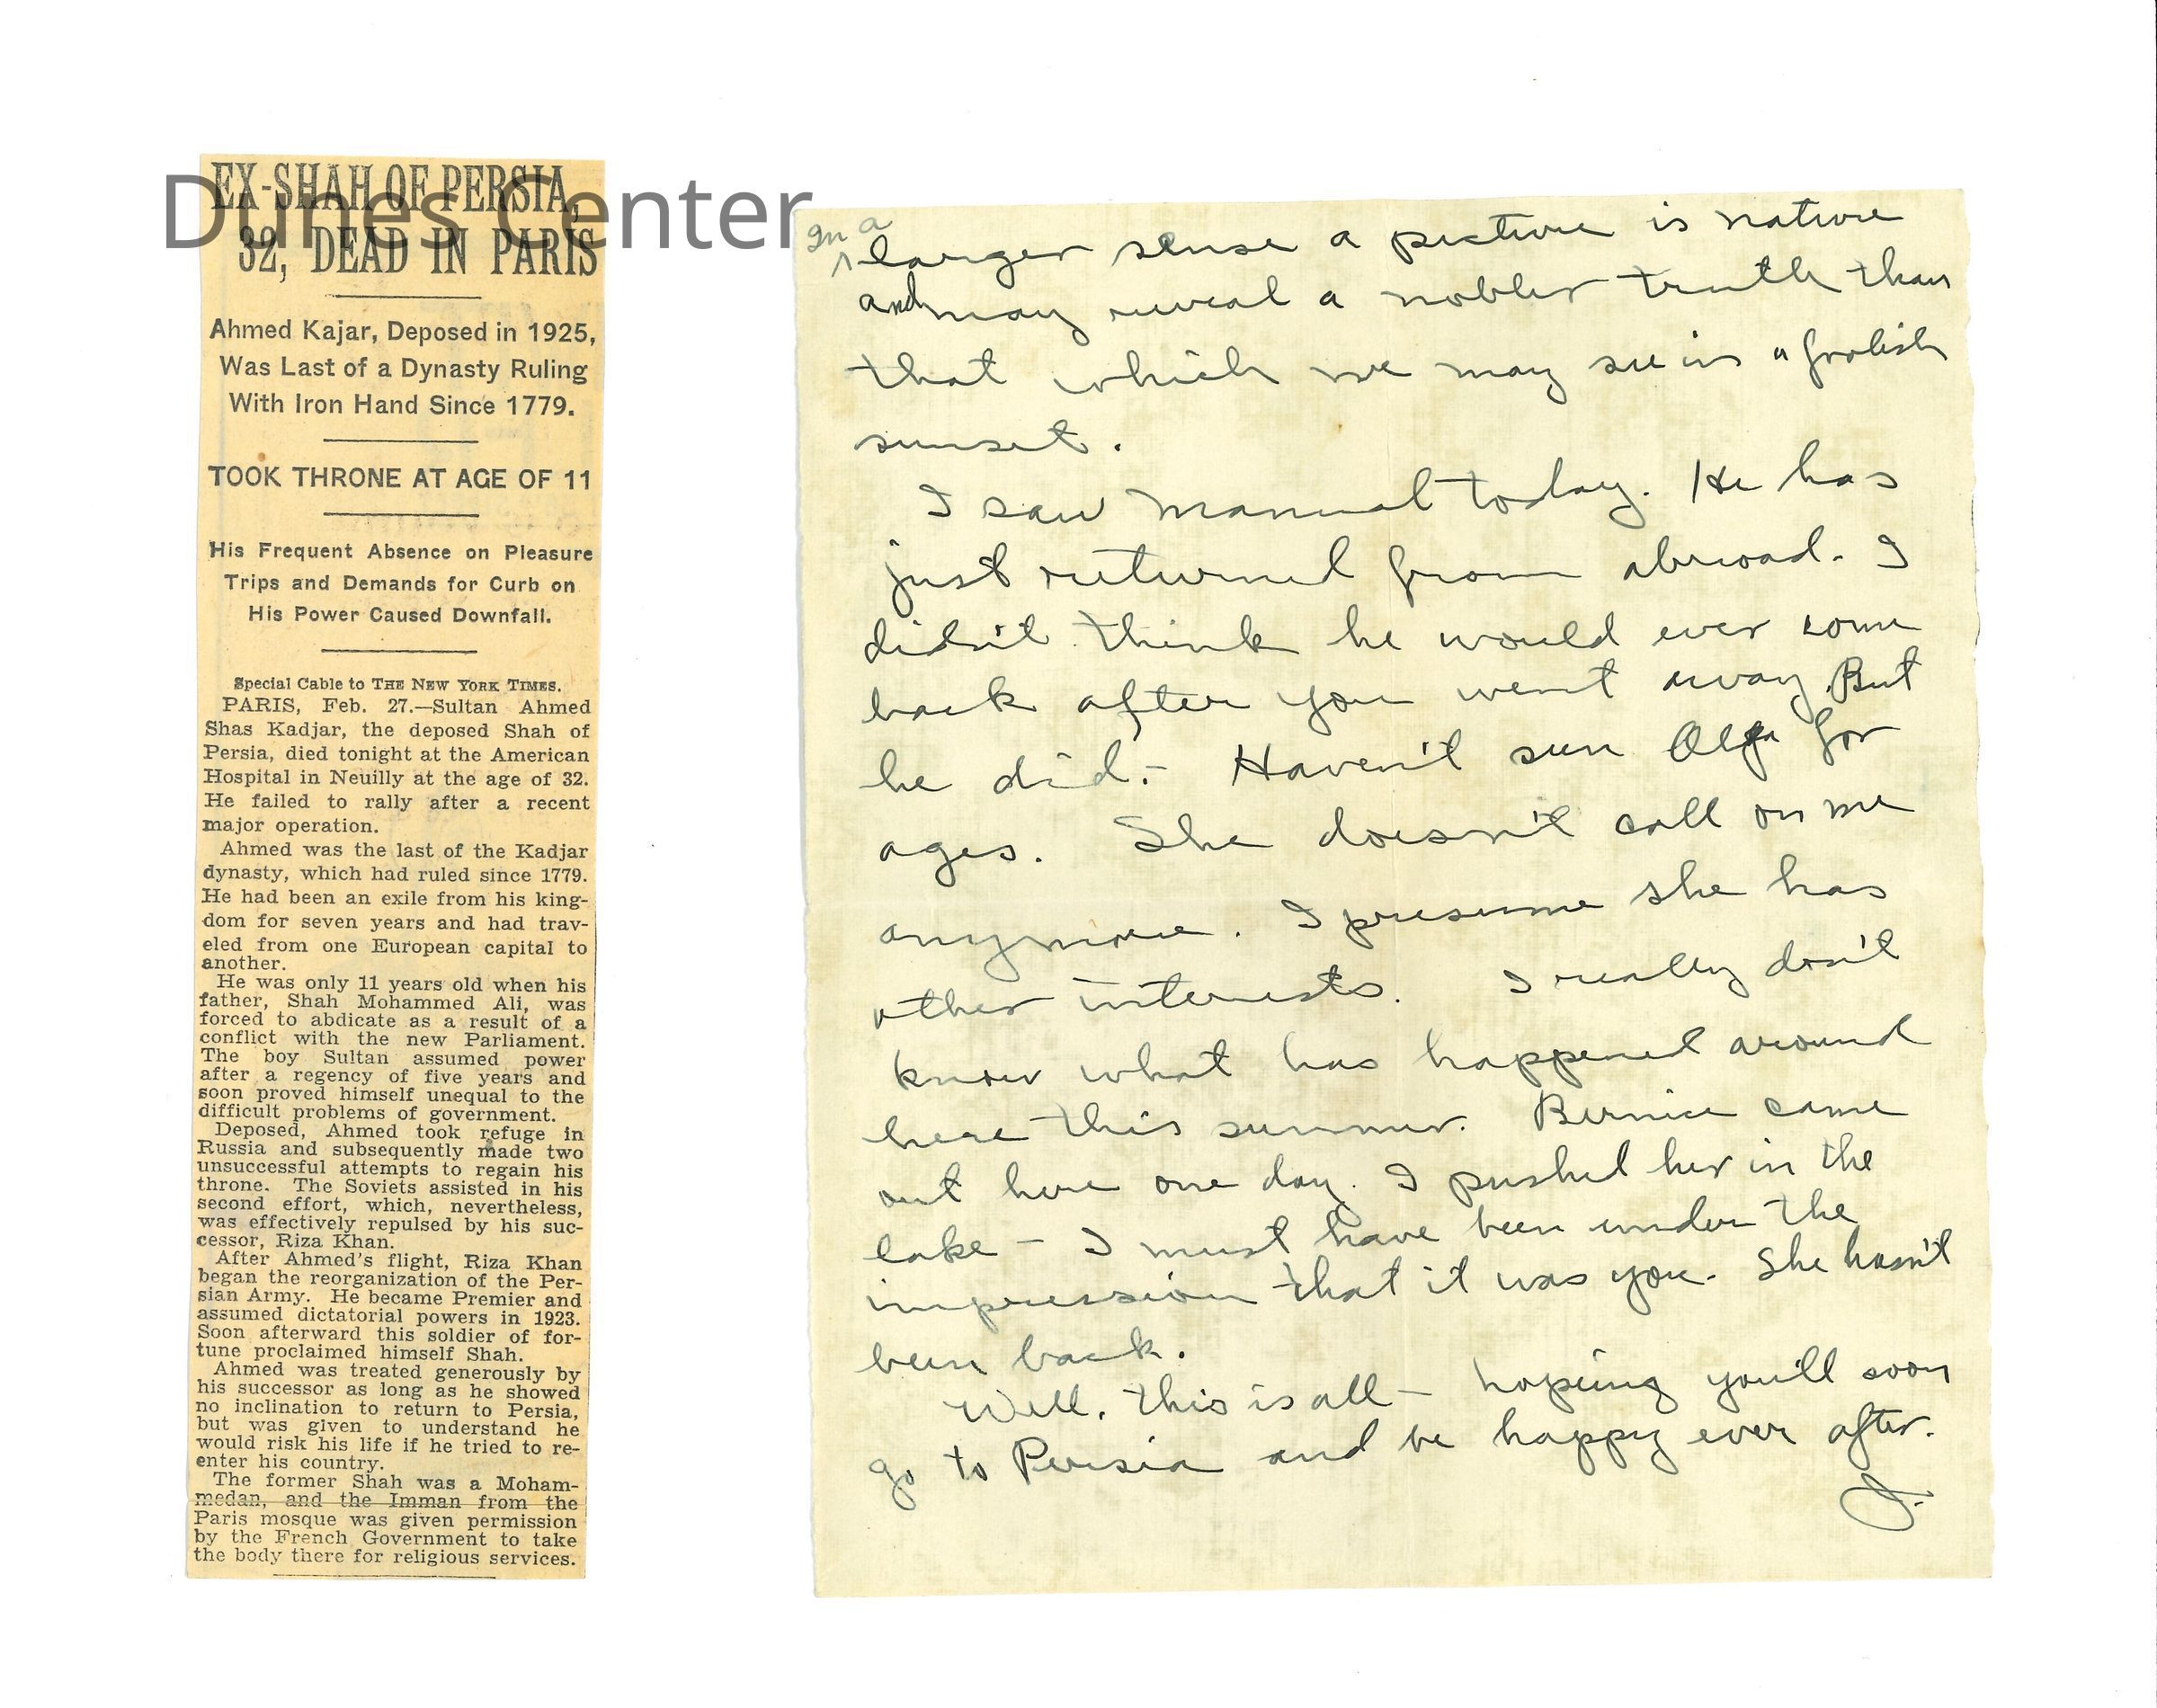 Dunes Center
EX-SHAH OF PERSIA,
32, DEAD IN PARIS
Ahmed Kajar, Deposed in 1925,
Was Last of a Dynasty Ruling
With Iron Hand Since 1779.
TOOK THRONE AT AGE OF 11
His Frequent Absence on Pleasure
Trips and Demands for Curb on
His Power Caused Downfall.
Special Cable to THE NEW YORK TIMES.
PARIS, Feb. 27.—Sultan Ahmed
Shas Kadjar, the deposed Shah of
Persia, died tonight at the American
Hospital in Neuilly at the age of 32.
He failed to rally after a recent
major operation.
Ahmed was the last of the Kadjar
dynasty, which had ruled since 1779.
He had been an exile from his king-
dom for seven years and had trav-
eled from one European capital to
another.
He was only 11 years old when his
father, Shah Mohammed Ali, was
forced to abdicate as a result of a
conflict with the new Parliament.
The boy Sultan assumed power
after a regency of five years and
soon proved himself unequal to the
difficult problems of government.
Deposed, Ahmed took refuge in
Russia and subsequently made two
unsuccessful attempts to regain his
throne. The Soviets assisted in his
second effort, which, nevertheless,
was effectively repulsed by his suc-
cessor, Riza Khan.
After Ahmed's flight, Riza Khan
began the reorganization of the Per-
sian Army. He became Premier and
assumed dictatorial powers in 1923.
Soon afterward this soldier of for-
tune proclaimed himself Shah.
Ahmed was treated generously by
his successor as long as he showed
no inclination to return to Persia,
but was given to understand he
would risk his life if he tried to re-
enter his country.
The former Shah was a Moham-
medan, and the Imman from the
Paris mosque was given permission
by the French Government to take
the body there for religious services.
In a larger sense a picture is nature
and may reveal a nobler truth than
that which we may see in a foolish
sunset.
I saw Manual today. He has
just returned from abroad. I
didn't think he would ever come
back after you went away. But
he did. - Haven't seen Olga for
ages. She doesn't call on me
anymore. I presume she has
other interests. I really don't
know what has happened around
here this summer. Bernice came
out here one day. I pushed her in the
lake - I must have been under the
impression that it was you. She hasn't
been back.
Well, this is all - hoping you'll soon
go to Persia and be happy ever after.
J.